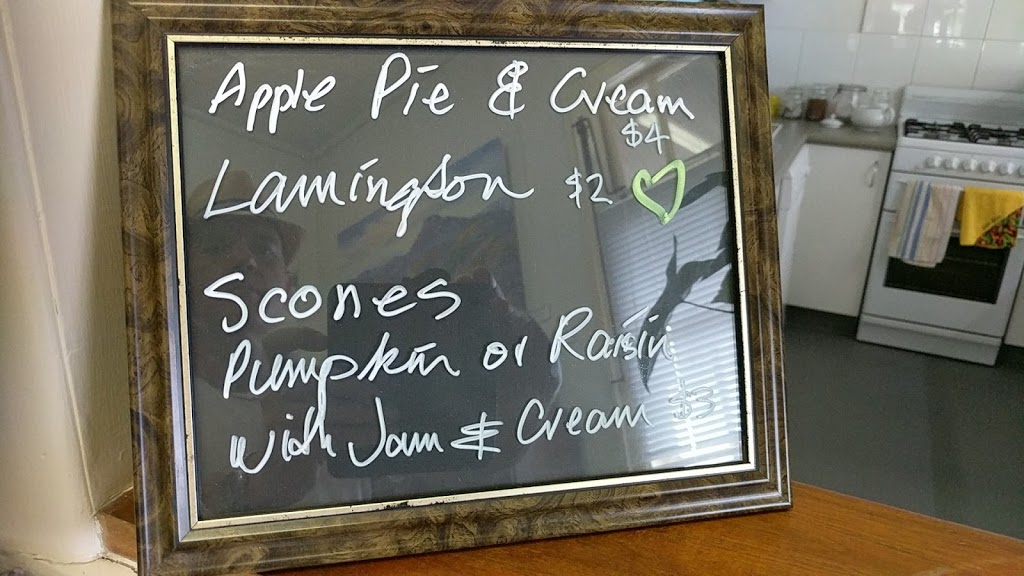 Apple Pie & Cream
$4
Lamington $2
Scones
Pumpkin or Raisin
with Jam & Cream $3